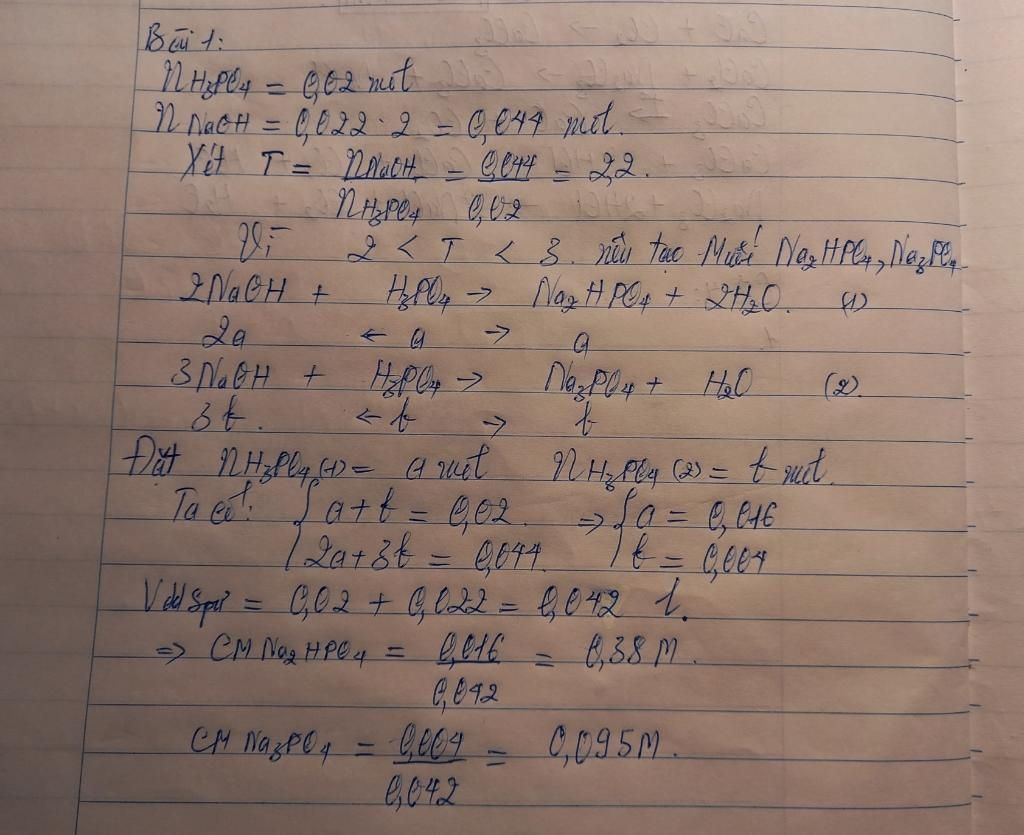 Bài 1:
nH₃PO₄ = 0,02 mol
nNaOH = 0,022 · 2 = 0,044 mol.
Xét T = nNaOH / nH₃PO₄ = 0,044 / 0,02 = 2,2.
Vì 2 < T < 3. nên tạo Muối Na₂HPO₄, Na₃PO₄
2NaOH + H₃PO₄ → Na₂HPO₄ + 2H₂O. (1)
2a ← a → a
3NaOH + H₃PO₄ → Na₃PO₄ + H₂O (2).
3b. ← b → b
Đặt nH₃PO₄ (1) = a mol nH₃PO₄ (2) = b mol.
Ta có: { a + b = 0,02. ⇒ { a = 0,016
2a + 3b = 0,044. b = 0,004
Vdd spư = 0,02 + 0,022 = 0,042 l.
⇒ CM Na₂HPO₄ = 0,016 / 0,042 = 0,38 M.
CM Na₃PO₄ = 0,004 / 0,042 = 0,095M.